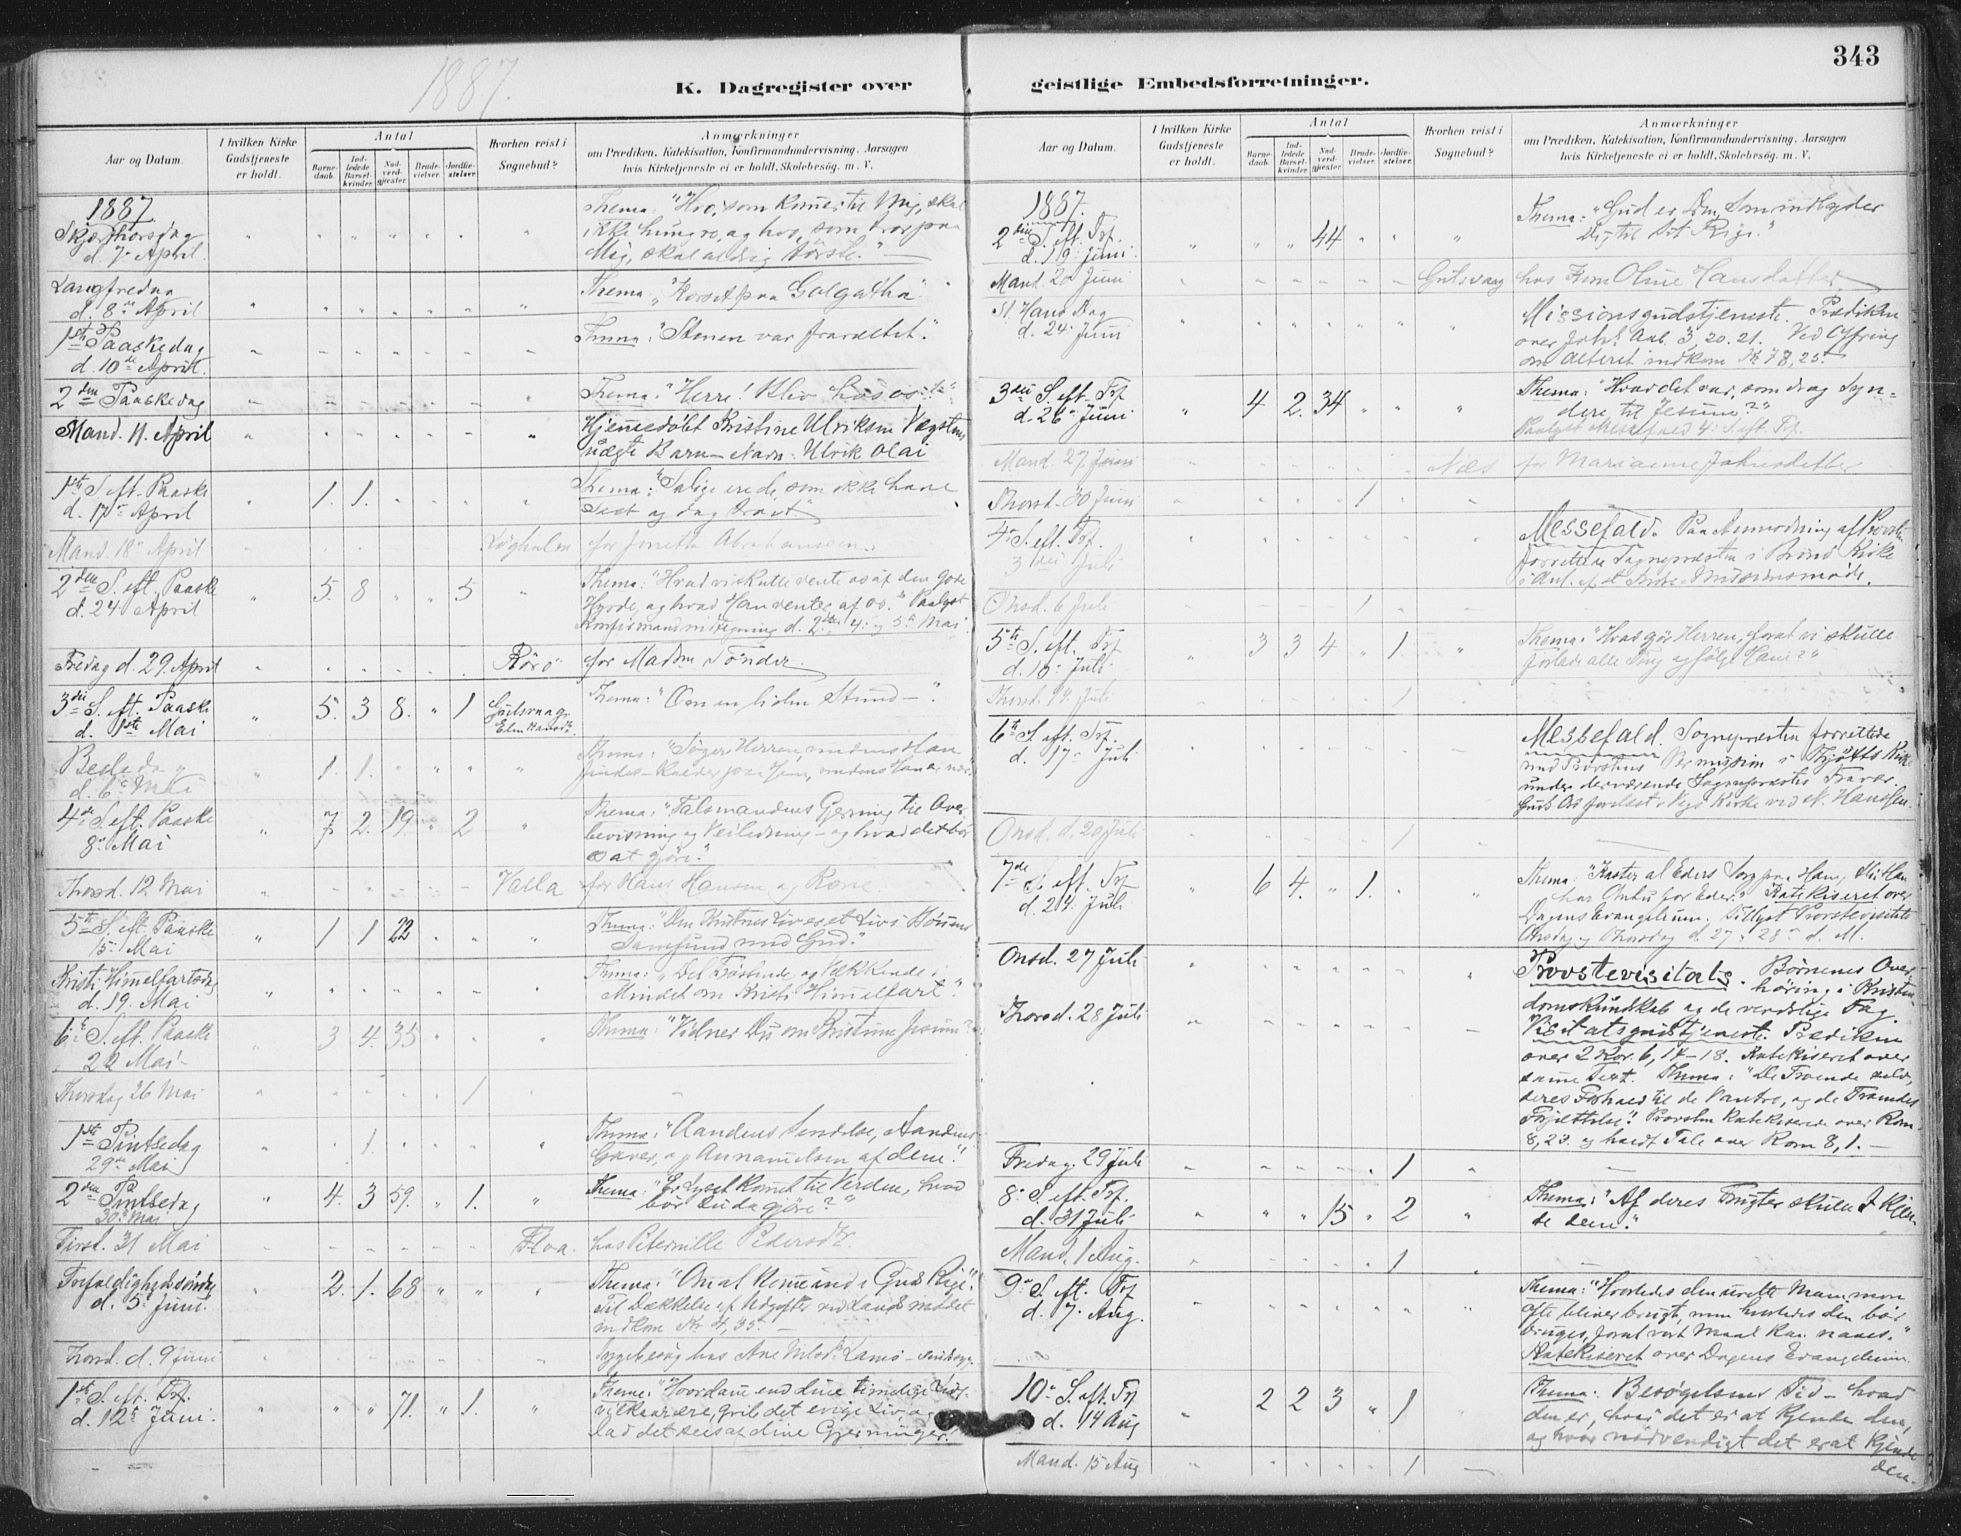 343
1887.
K. Dagregister over
geistlige Embedsforretninger.
Aar og Datum.
I hvilken Kirke
Gudstjeneste
er holdt.
Antal
Barne-
daab.
Ind-
ledede
Barsel-
kvinder.
Nad-
verd-
gjester
Brude-
vielser.
Jordfæ-
stelser.
Hvorhen reist i
Sognebud?
Anmærkninger
om Prædiken, Katekisation, Konfirmandundervisning, Aarsagen
hvis Kirketjeneste ei er holdt, Skolebesøg, m. V.
1887.
Skjærthorsdag
d. 7de April.
Thema: "Hvo, som kommer til Mig, skal
ikke hungre, og hvo, som tror paa
Mig, skal aldrig tørste."
Langfredag
d. 8de April
Thema: "Korset paa Golgatha".
1ste Paaskedag
d. 10de April.
Thema: "Stenen var fravæltet".
2den Paaskedag
Thema: "Herre! bliv hos os!"
Mand. 11. April
Hjemmedøbt Kristine Ulriksen
uægte Barn - Navn: Ulrik Olai
1ste S. eft. Paaske
d. 17de April
1. 1.
Thema: "Salige ere de, som ikke have
seet og dog troet"
Mand. 18de April
for Jonetta Abrahamsen
2den S. eft. Paaske
d. 24 April
5. 8 5
Thema: "Hvad vi skulle vente os af den gode
Hyrde, og hvad Han venter af os." Paalyst
Fredag d. 29 April
Rørø
for Madam Tønder.
3die S. eft. Paaske
d. 1ste Mai
5. 3 8. 1
Thema: "Om en liden Stund - "
Bededag
d. 6te Mai
1. 1.
Thema: "Søger Herren, medens Han
findes - Kalder paa Ham, medens Han er nær."
4de S. eft. Paaske
8de Mai
7. 2. 19. 2
Thema: "Talsmandens Gjerning til Over-
bevisning og Veiledning - og hvad det bør
os at gjøre."
Thorsd. 12 Mai
Valla
for Hans Hansen og Kone.
5te S. eft. Paaske
15. Mai
1 1 22
Thema: "Den Kristnes Liv er et Liv i Bønnens
Samfund med Gud."
Kristi Himmelfartsdag
d. 19. Mai
Thema: "Det Trøstende og Vækkende i
Mindet om Kristi Himmelfart".
6te S. eft. Paaske
22 Mai
3 4. 35
Thema: "Vidner Du om Kristum Jesum?"
Thorsdag 26 Mai
1
1ste Pintsedag
29de Mai
1.
Thema: "Aandens Sendelse, Aandens
Gaver, og Annammelsen af dem."
2den Pintsedag
30te Mai
4. 3 59. 1.
Thema: "Er Lyset kommet til Verden, hvad
bør Du da gjøre?"
Tirsd. 31 Mai
Floa.
hos Peternille Pedersdtr.
Trefoldighedssøndag
d. 5te Juni.
2. 1. 68
Thema: "Om at komme ind i Guds Rige".
Til Dækkelse af Udgifter ved Landsmødet
indkom Kr 4,35.
Thorsd. d. 9 Juni
1ste S. eft. Tref.
d. 12te Juni.
71. 1.
Thema: "Hvordan end dine timelige Livs-
vilkaar ere, grib det evige Liv og
lad det sees af dine Gjerninger!
Aar og Datum.
I hvilken Kirke
Gudstjeneste
er holdt.
Antal
Barne-
daab.
Ind-
ledede
Barsel-
kvinder.
Nad-
verd-
gjester
Brude-
vielser.
Jordfæ-
stelser.
Hvorhen reist i
Sognebud?
Anmærkninger
om Prædiken, Katekisation, Konfirmandundervisning, Aarsagen
hvis Kirketjeneste ei er holdt, Skolebesøg, m. V.
1887.
2den S. eft. Tref.
d. 19de Juni.
44
Thema: "Gud er Den, Som indbyder
Dig til Sit Rige."
Mand. 20 Juni
Gulsvaag
hos Oline Hansdatter
St. Hans Dag
d. 24. Juni
Missionsgudstjeneste. Prædiken
over Joh. Aab. 3, 20. 21. Ved Ofring
om Alteret indkom Kr 78,25
3die S. eft. Tref
d. 26de Juni
4 2. 34
Thema: "Hvad det var, som drog Syn-
dere til Jesum?"
Paalyst Messefald 4de S. eft. Tref.
Mand. 27 Juni
Næs
for Marianne Johnsdatter
Thorsd. 30 Juni
1
4de S. eft. Tref.
3die Juli
Messefald. Paa Anmodning af Provsten
forretter Sognepresten i Brønø Kirke
Onsd. 6 Juli
1
5te S. eft. Tref
d. 10de Juli
3 3 4 1
Thema: "Hvad gjør Herren, forat vi skulle
forlade alle Ting og følge Ham?"
Thorsd. 14. Juli
1
6te S. eft. Tref.
d. 17de Juli
Messefald. Sognepresten forrettede
med Provstens Permission i Tjøtto Kirke
under derværende Sognepræsts Fravær.
Guds Ord forelæst i Vegø Kirke ved N. Hanssen.
Onsd. d. 20 Juli
1
7de S. eft. Tref
d. 24. Juli
6 4. 1.
Thema: "Kaster al Eders Sorg paa Ham, thi Han
har Omhu for Eder." Katekiseret over
Dagens Evangelium. Tillyst Provstevisitats
Onsdag og Thorsdag d. 27de og 28de d. M.
Onsd. 27 Juli
Provstevisitats. Børnenes Over-
høring i Kristen-
domskundskab og de verdslige Fag.
Thorsd. 28 Juli
Visitatsgudstjeneste. Prædiken
over 2 Kor. 6, 14-18. Katekiseret over
samme Text. Thema: "De Troende selv,
deres Forhold til de Vantro, og de Troendes
Forjættelse." Provsten Katekiserede over Rom
8, 23. og holdt Tale over Rom 8, 1.
Fredag. 29 Juli
1
8de S. eft. Tref.
d. 31 Juli
15 2
Thema: "Af deres Frugter skulle I kjen-
de dem."
Mand. 1 Aug.
1
9de S. eft. Tref
d. 7. Aug.
Thema: "Hvorledes den urette Mammon
ofte bliver brugt, men hvorledes den bør
bruges, forat vort Maal kan naaes."
Katekiseret over Dagens Evangelium.
10de S. eft. Tref
d. 14 Aug
2 2 3 1
Thema: Besøgelsens Tid - hvad
den er, hvor det er at kjende den,
og hvor nødvendigt det er at kjende
den.
Mand. 15 Aug
1